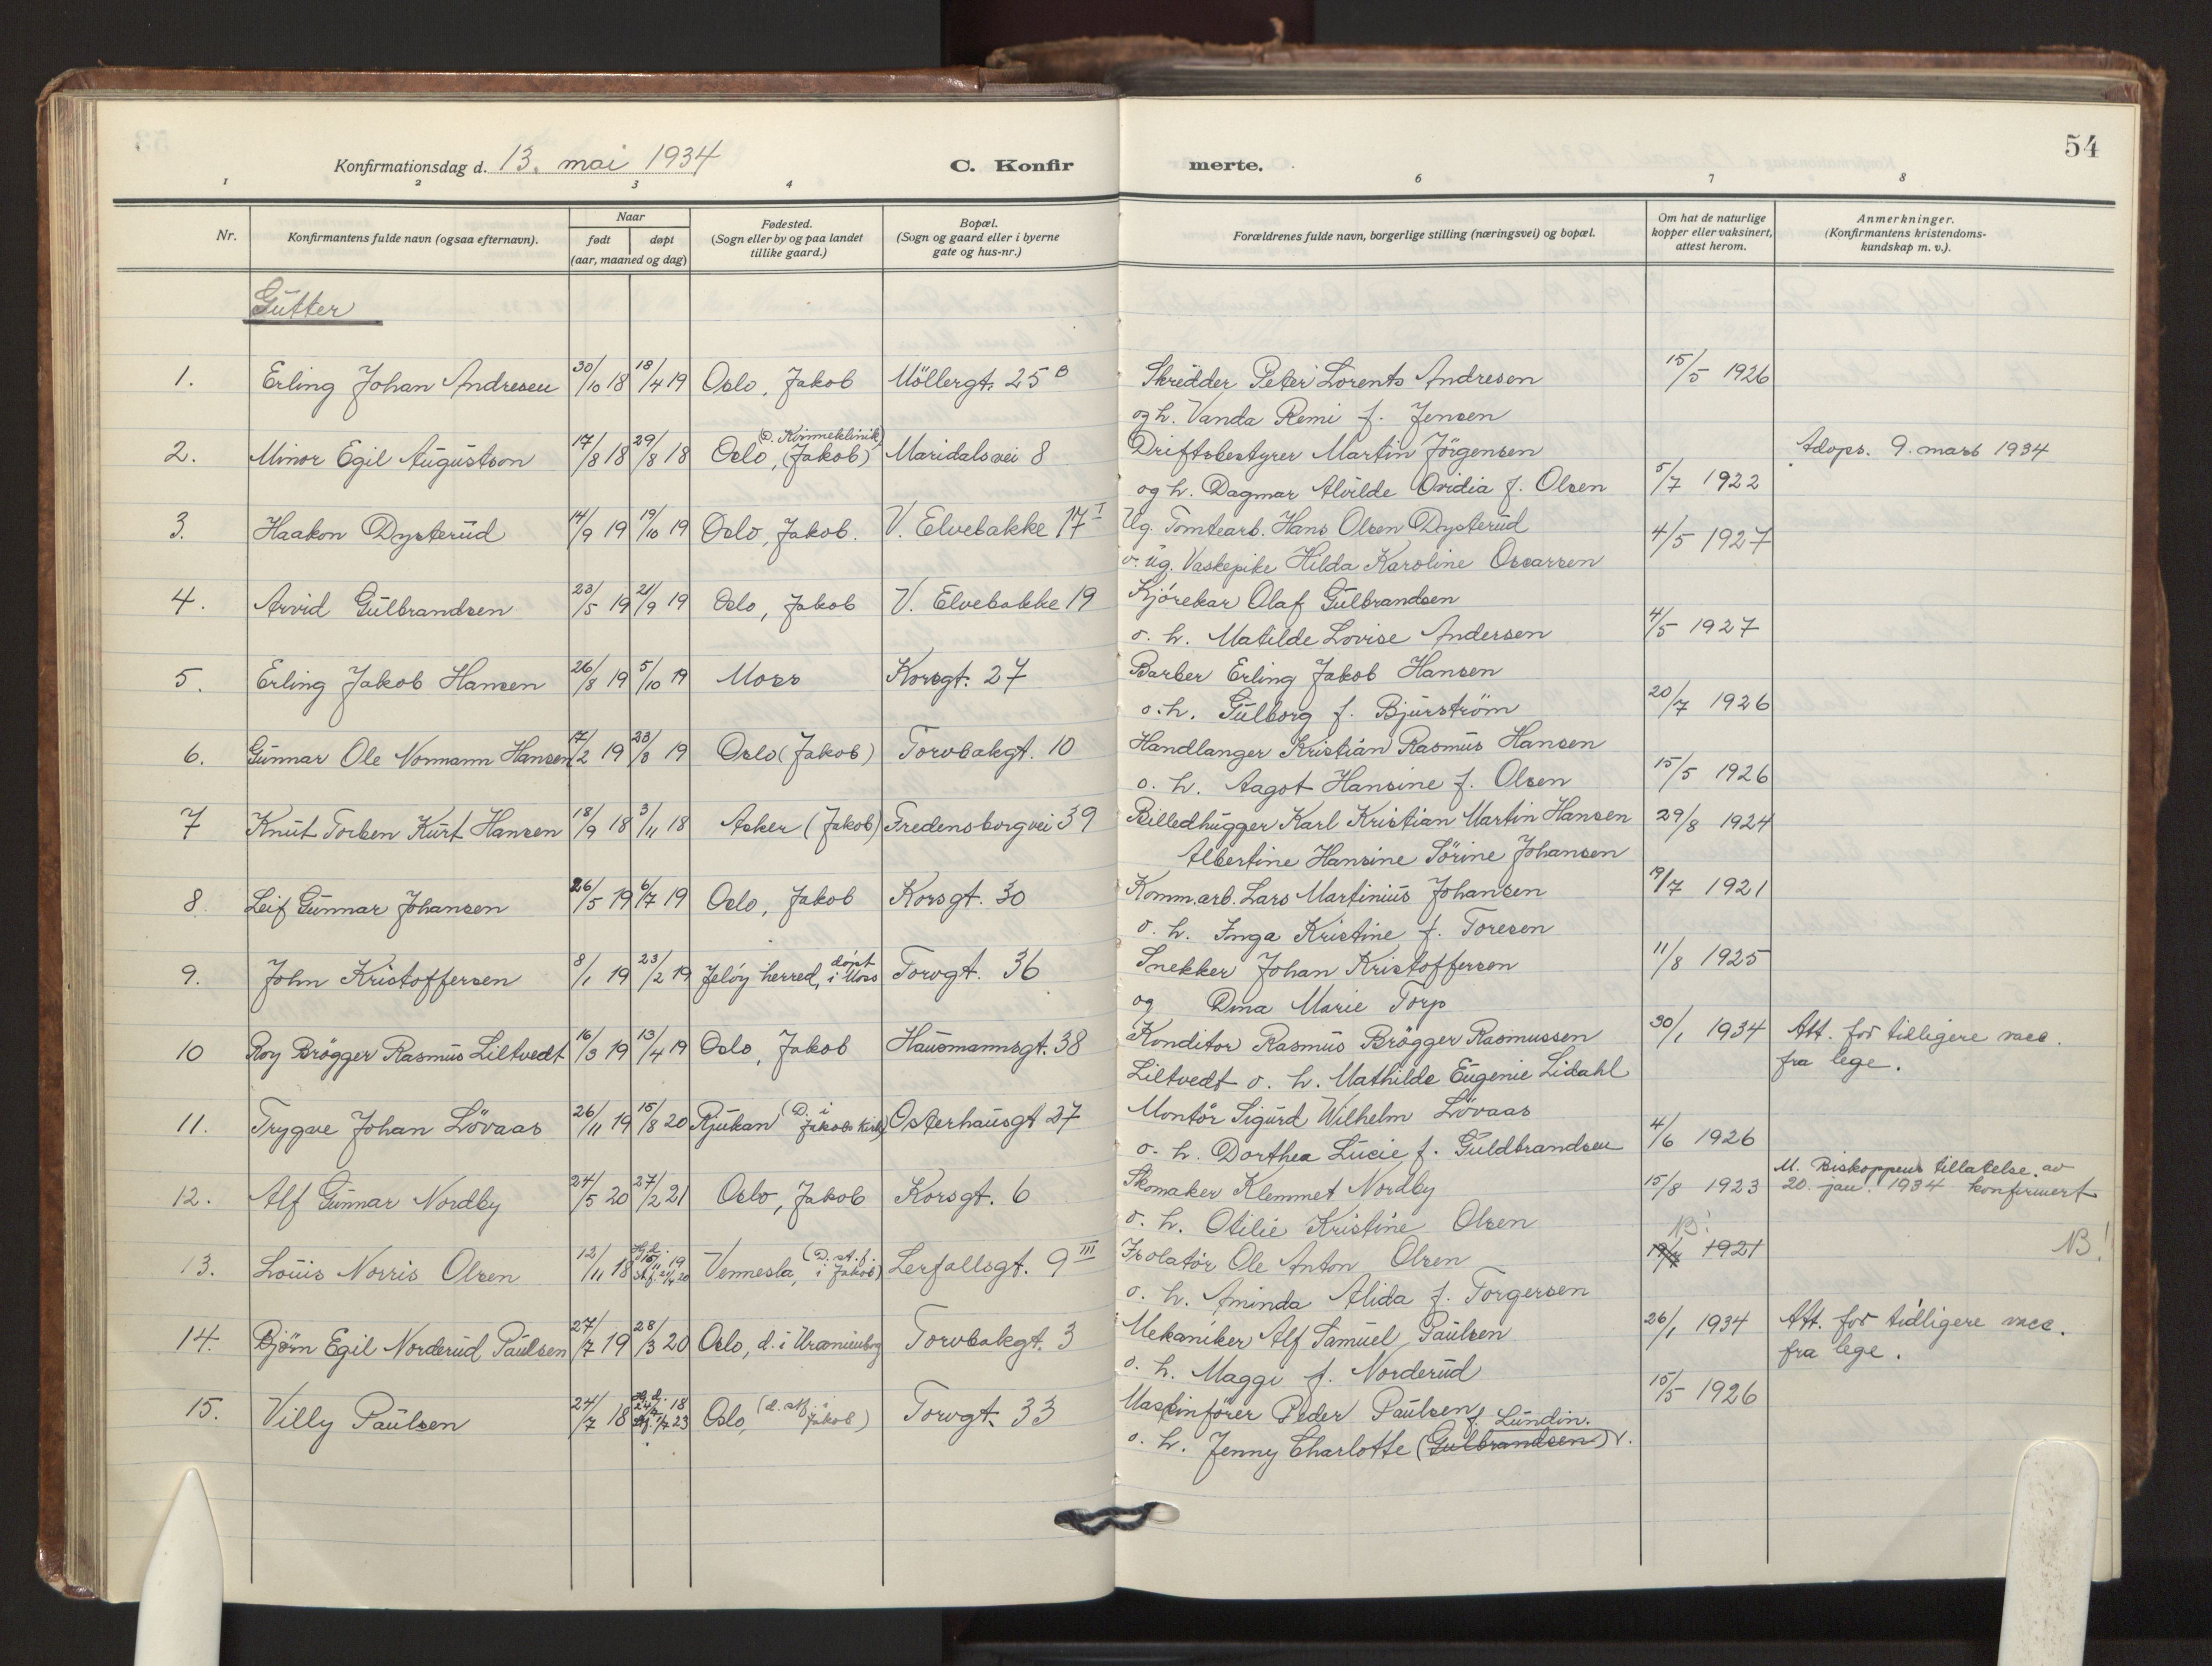 54
Konfirmationsdag d. 13. mai 1934 C. Konfirmerte.
1 2 3 4 6 7 8
Nr. Konfirmantens fulde navn (ogsaa efternavn). Naar født døpt (aar, maaned og dag) Fødested. (Sogn eller by og paa landet tillike gaard.) Bopæl. (Sogn og gaard eller i byerne gate og hus-nr.) Forældrenes fulde navn, borgerlige stilling (næringsvei) og bopæl. Om hat de naturlige kopper eller vaksinert, attest herom. Anmerkninger. (Konfirmantens kristendomskundskap m. v.).
Gutter
1. Erling Johan Andresen 30/10 18 18/4 19 Oslo, Jakob Möllergt. 25 B Skredder Peter Lorents Andresen 15/5 1926
og h. Vanda Remi f. Jensen
2. Minor Egil Augustson 17/8 18 29/8 18 Oslo, (Jakob) (D. Kvinneklinik) Maridalsvei 8 Driftsbestyrer Martin Jörgensen Adops. 9. mars 1934
og h. Dagmar Alvilde Ovidia f. Olsen 5/7 1922
3. Haakon Dysterud 14/9 19 19/10 19 Oslo, Jakob. V. Elvebakke 17 I Ug. Tomtearb. Hans Olsen Dysterud 4/5 1927
o. ug. Vaskepike Hilda Karoline Oscarsen
4. Arvid Gulbrandsen 23/5 19 21/9 19 Oslo, Jakob V. Elvebakke 19 Kjörekar Olaf Gulbrandsen
o. h. Matilde Lovise Andersen 4/5 1927
5. Erling Jakob Hansen 26/8 19 5/10 19 Moss Korsgt. 27 Barber Erling Jakob Hansen
o. h. Gulborg f. Bjurström 20/7 1926
6. Gunnar Ole Normann Hansen 17/2 19 23/3 19 Oslo (Jakob) Torvbakgt. 10 Handlanger Kristian Rasmus Hansen
o. h. Aagot Hansine f. Olsen 15/5 1926
7 Knut Torben Kurt Hansen 18/9 18 3/11 18 Asker (Jakob) Fredensborgvei 39 Billedhugger Karl Kristian Martin Hansen 29/8 1924
Albertine Hansine Sörine Johansen
8 Leif Gunnar Johansen 26/5 19 6/7 19 Oslo, Jakob Korsgt. 30 Komm.arb. Lars Martinius Johansen 19/7 1921
o. h. Inga Kristine f. Toresen
9. John Kristoffersen 8/1 19 23/2 19 Jelöy herred, döpt i Moss Torvgt. 36 Snekker Johan Kristoffersen 11/8 1925
og Dina Marie Torp
10 Roy Brögger Rasmus Liltvedt 16/3 19 13/4 19 Oslo, Jakob Hausmannsgt. 38 Konditor Rasmus Brögger Rasmussen 30/1 1934 Att. for tidligere vacc.
Liltvedt o. h. Mathilde Eugenie Lidahl fra lege.
11. Trygve Johan Lövaas 26/11 19 15/8 20 Rjukan (D. i Jakobs kirke) Osterhausgt 27 Montör Sigurd Wilhelm Lövaas
o. h. Dorthea Lucie f. Guldbrandsen 4/6 1926
12. Alf Gunnar Nordby 24/5 20 27/2 21 Oslo, Jakob Korsgt. 6 Skomaker Klemmet Nordby 15/8 1923 M. Biskoppens tillatelse av 20. jan. 1934 konfirmert
o. h. Otilie Kristine Olsen
13. Louis Norris Olsen 12/11 18 Hj.d. 15/11 19 st.f. 21/4 20 Vennesla, (D. st. f. i Jakob) Lerfallsgt. 9 III Isolatör Ole Anton Olsen NB! 19/7 1921 NB!
o. h. Aminda Alida f. Torgersen
14. Björn Egil Norderud Paulsen 27/7 19 28/3 20 Oslo, d. i Uranienborg Torvbakgt. 3 Mekaniker Alf Samuel Paulsen 26/1 1934 Att. for tidligere vacc.
o. h. Maggi f. Norderud fra lege.
15. Villy Paulsen 24/7 18 Hj.d. 24/7 18 Stf. 1/7 23 Oslo, (d. stf. i Jakob) Torvgt. 33 Maskinförer Peder Paulsen 15/5 1926
o. h. Jenny Charlotte (Gulbrandsen) f. Lundin.